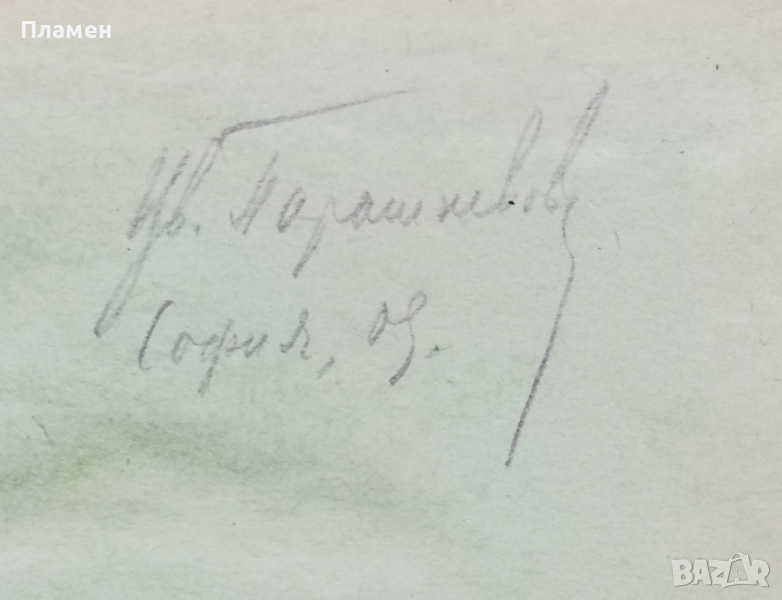 Пламен
Цв. Парашкевов
София, 09.
BAZAR